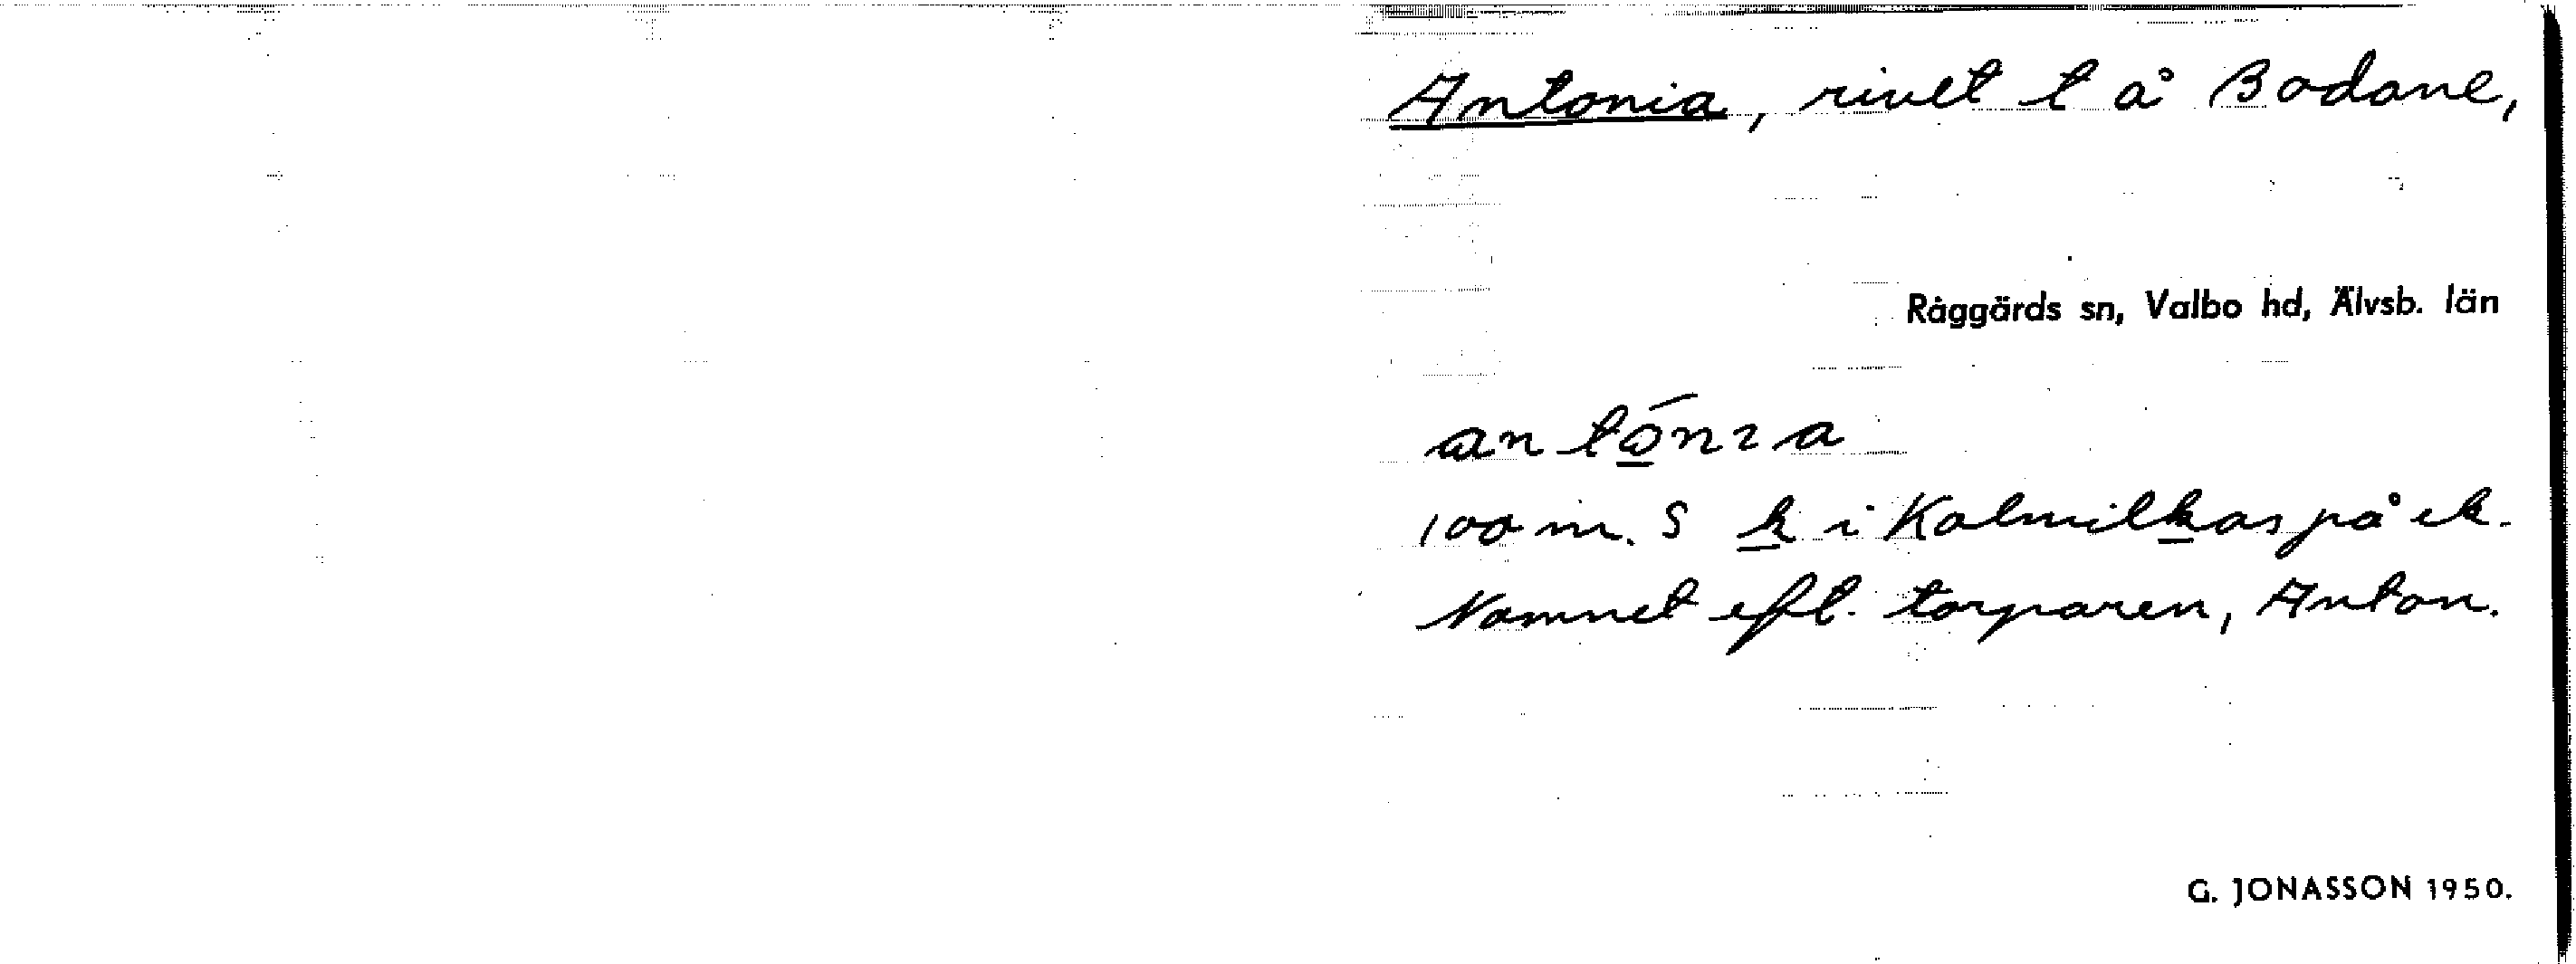 Antonia, rivet t å Bodane,
Råggärds sn, Valbo hd, Älvsb. län
antónıa
100 m. S k i Kolmilkas på ek.
Namnet eft. torparen, Anton.
G. JONASSON 1950.